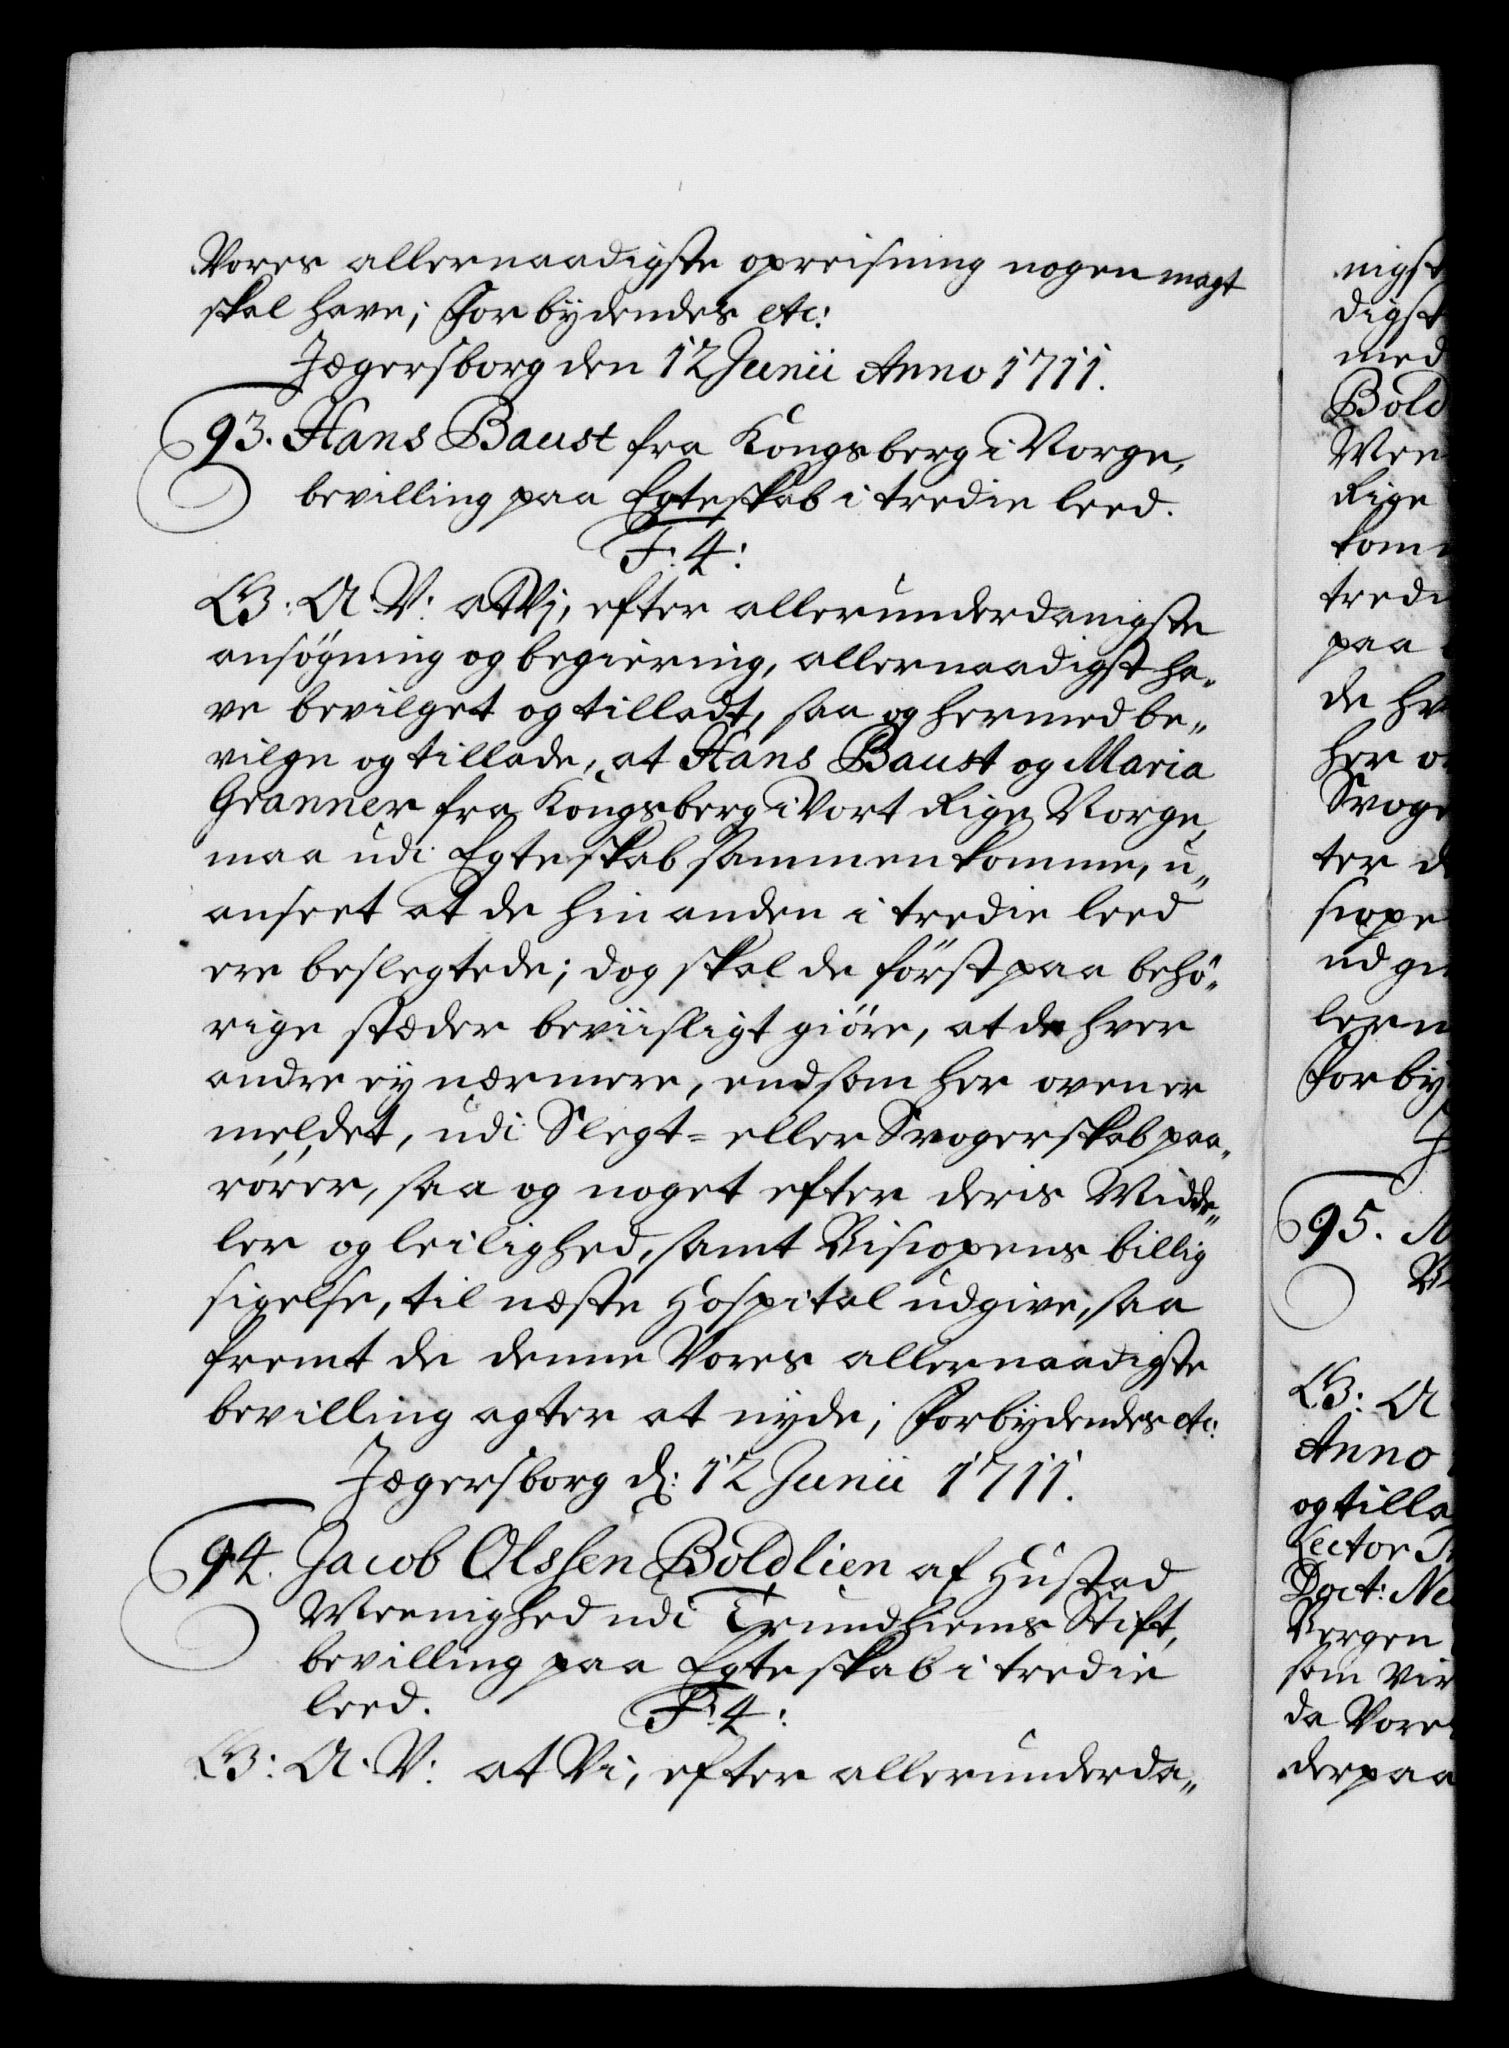 Vores allernaadigste opreisning nogen magt
skal have; Forbydendes etc:
Jægersborg den 12 Junii Anno 1711.
93. Hans Baust fra Kongsberg i Norge,
bevilling paa Egteskab i tredie leed.
F: 4:
G: A: V: at Vi, efter allerunderdanigste
ansøgning og begiering, allernaadigst ha„
ve bevilget og tilladt, saa og hermed be„
vilge og tillade, at Hans Baust og Maria
Granner fra Kongsberg i Vort Rige Norge,
maa udi Egteskab sammenkomme, u„
anseet at de hinanden i tredie leed
ere beslegtede; dog skal de först paa behö„
rige stæder beviisligt giöre, at de hver
andre ey nærmere, end som her oven er
meldet, udi Slegt= eller Svogerskab paa„
rörer, saa og noget efter deris Midde„
ler og leilighed, samt Biscopens billig
sigelse, til næste Hospital udgive, saa
fremt de denne Vores allernaadigste
bevilling agter at nyde; Forbydendes etc:
Jægersborg d: 12 Junii 1711.
94. Jacob Olssen Boldlien af Hustad
Meenighed udi Trundhiems Stift,
bevilling paa Egteskab i tredie
leed. F: 4:
G: A: V: at Vi, efter allerunderda„
nigst
digst
med
Bold
Mee
Rige
kom
tredi
paa
de hv
her o
Svoge
ter d
scope
udgi
lern
Forby
95.
G: A
Anno
og tilla
Lector
Doct: Ne
Bergen
som vir
da Vore
derpaa